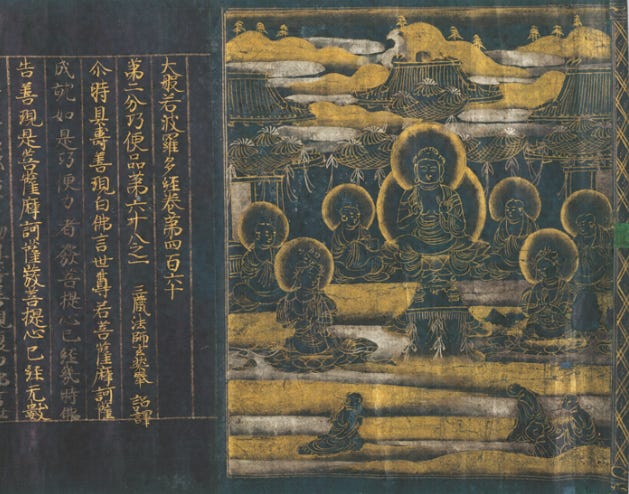 大般若波羅多経巻第四百六十
第二分巧便品第六十八之一 三藏法師玄奘奉 詔譯
尒時具壽善現白佛言世尊若菩薩摩訶薩
成就如是巧便力者發菩提心已経幾時佛
告善現是菩薩摩訶薩發菩提心已経无數